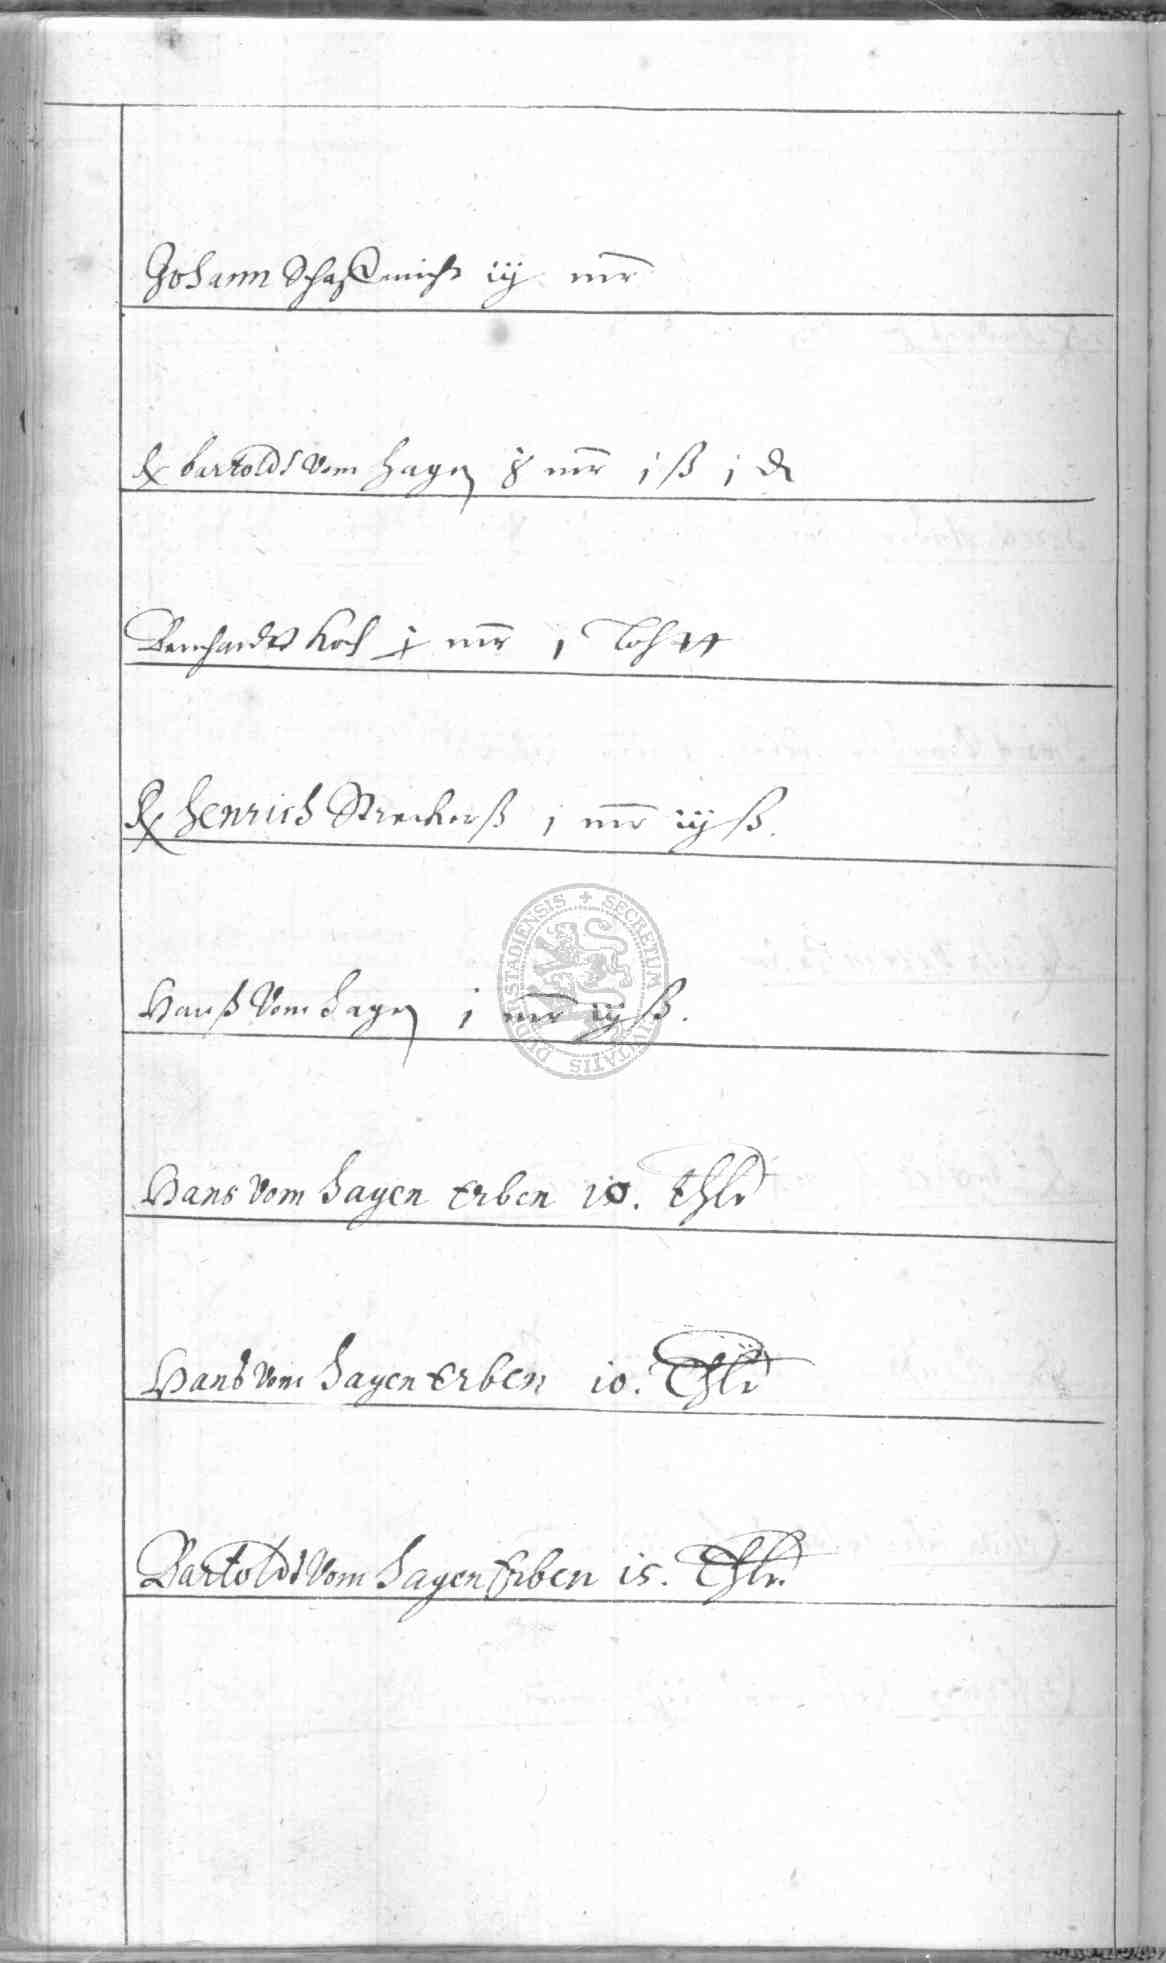 Johann iij mr
bartoldt Vom Hagen mr j ß j
Bernhardt Koch mr 1
Henrich Streckerß 1 mr iij ß.
SECRETUM CIVITATIS DUDERSTADIENSIS
Hanß Vom Hagen j mr iij ß.
Hans Vom Hagen Erben 10. Thlr
Hans Vom Hagen Erben 10. Thlr
Bartoldt Vom Hagen Erben 15. Thlr.